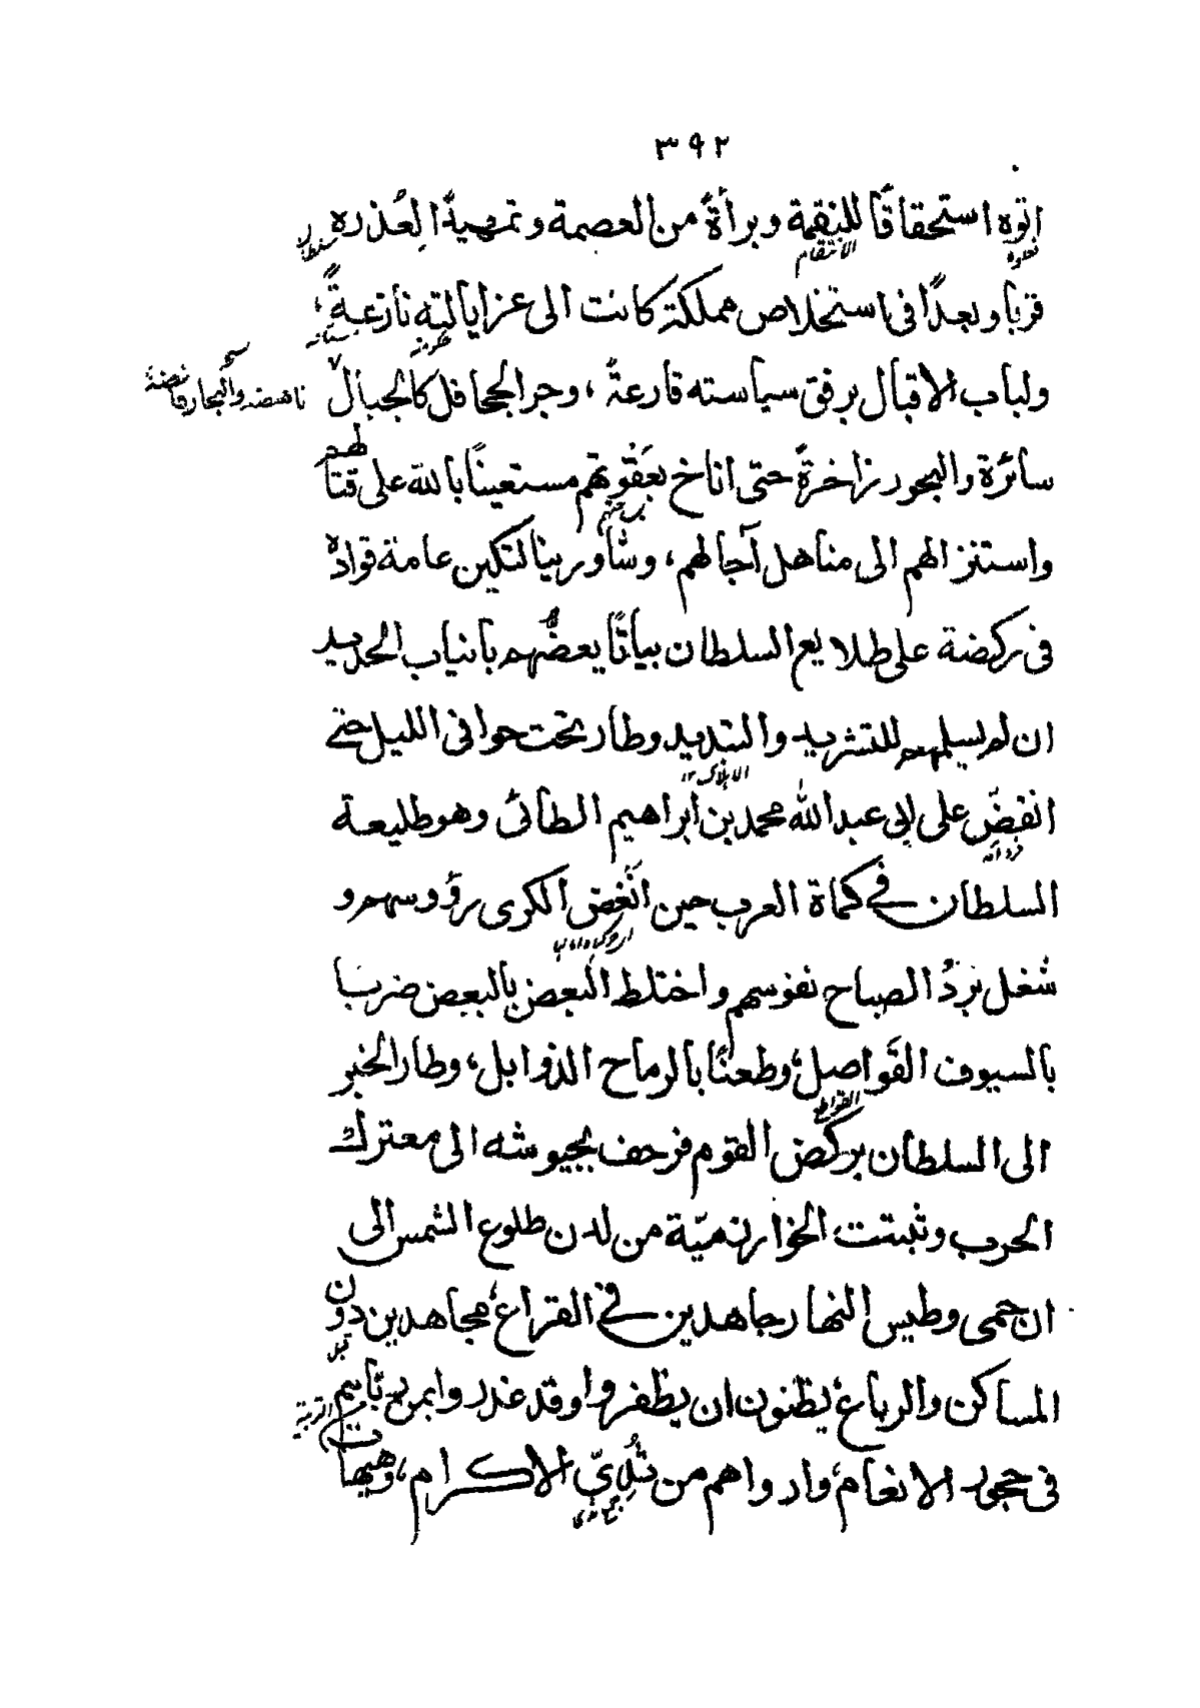 ٣٩٢
اتوه استحقاقًا للنقمة وبرأةً من العصمة وتمهيدًا لعُذره
فعلوه الانتقام سلطان
قربا وبعدًا في استخلاص مملكة كانت الى عزايالته نازعةً،
حكومته
ولباب الاقبال برفق سياسته قارعةً، وجر الجحافل كالجبال
ناهضة والبحار
سائرة والبحور زاخرةً حتى اناخ بعَقْوتهم مستعينًا بالله على قتالهم
واستنزالهم الى مناهل آجالهم، وشاور ينالتكين عامة قواده
في ركضة على طلايع السلطان بياتًا يعضّهم بانياب الحديد
ان لم يسلمهم للتشريد والتبديد وطار تحت خوافي الليل حتى
الاهلاك ١٢
انقضّ على ابي عبدالله محمد بن ابراهيم الطائى وهو طليعة
السلطان في كماة العرب حين انغض الكرى رؤوسهم و
شغل بَرْدُ الصباح نفوسهم واختلط البعض بالبعض ضربا
بالسيوف القَواصل، وطعنًا بالرماح الذوابل، وطار الخبر
القواطع
الى السلطان بركض القوم فزحف بجيوشه الى معترك
الحرب وثبتت الخوارزميّة من لدن طلوع الشمس الى
ان حمى وطيس النهار جاهدين في القراع، مجاهدين دون
قبل
المساكن والرباع، يظنون ان يظفروا وقد غدروا بمن ربّاهم
التربية
في حجور الانعام، وارواهم من ثُدِيّ الاكرام، وهيهات
جمع ثدى